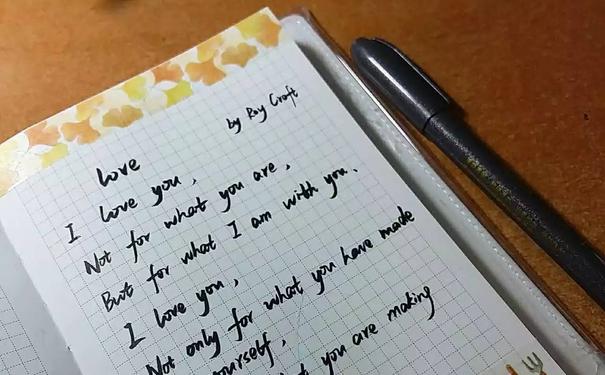 by Roy Croft
Love
I love you,
Not for what you are,
But for what I am with you.
I love you,
Not only for what you have made
yourself,
what you are making